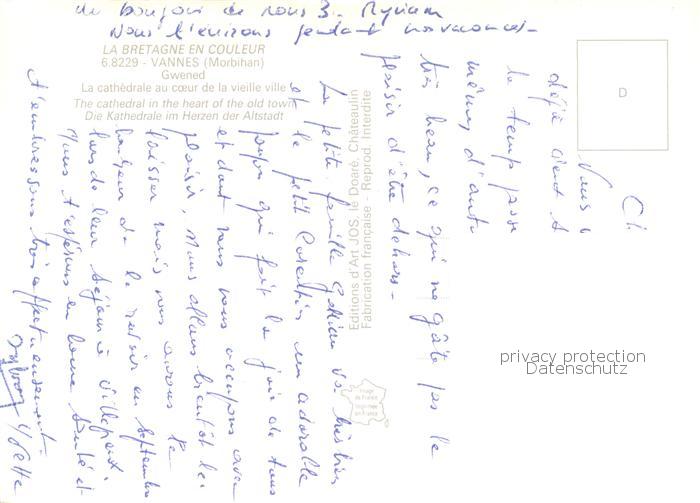 un bonjour de nous 3. Myriam
Nous t'écrirons pendant nos vacances -
LA BRETAGNE EN COULEUR
6.8229 - VANNES (Morbihan)
Gwened
La cathédrale au cœur de la vieille ville
The cathedral in the heart of the old town
Die Kathedrale im Herzen der Altstadt
D
Ch
Nous
déjà
le temps passe
même, d'autr
très beau, ce qui ne gâte pas le
plaisir d'être dehors -
La petite famille va très bien
et le petit Corentin un adorable
poupon qui fait la joie de tous
et dont nous nous occupons avec
plaisir, nous allons bientôt les
laisser mais nous avons le
bonheur de le revoir en septembre
lors de leur séjour à Villepreux.
Nous t'espérons en bonne santé et
t'embrassons très affectueusement.
Yvette
Editions d'Art JOS le Doaré, Châteaulin
Fabrication française - Reprod. Interdite
Image
de France
Imprimée
en France
privacy protection
Datenschutz